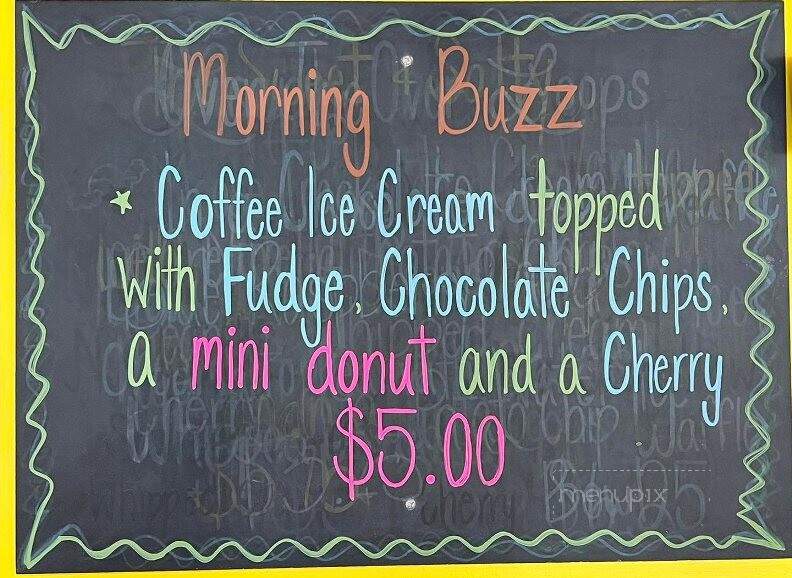 Morning Buzz
* Coffee Ice Cream topped
with Fudge, Chocolate Chips,
a mini donut and a Cherry
$5.00
menupix